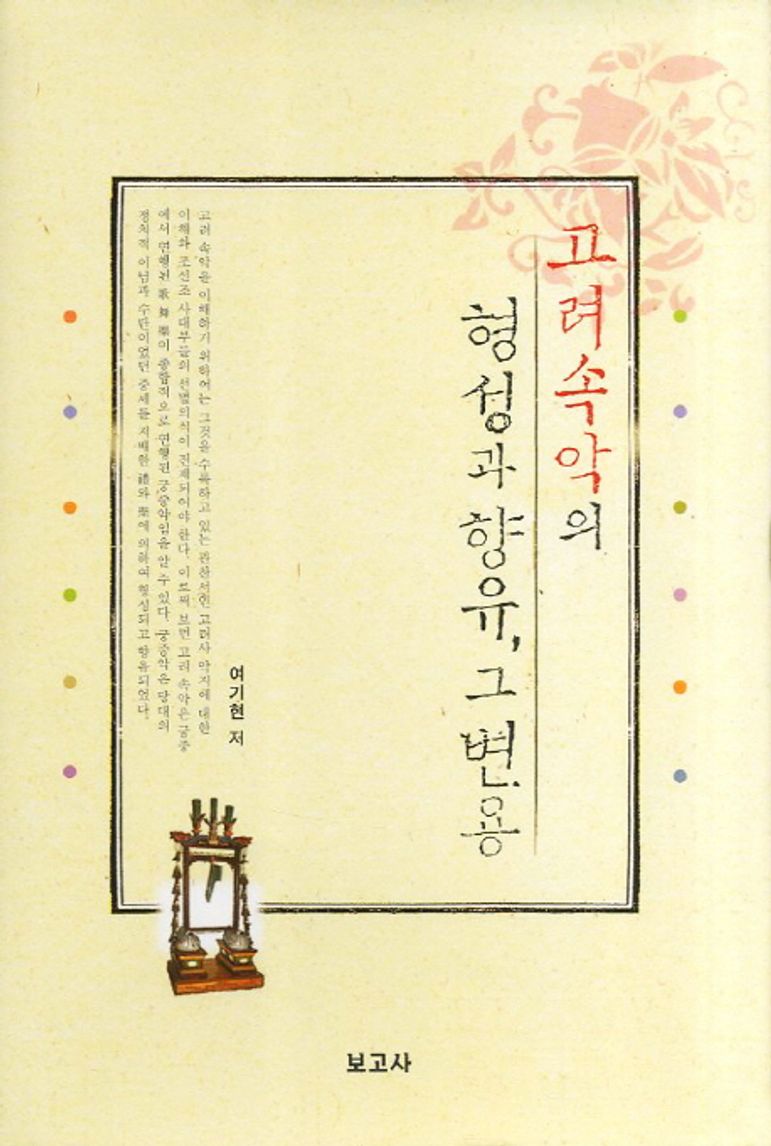 고려속악의
형성과 향유, 그 변용
고려 속악을 이해하기 위하여는 그것을 수록하고 있는 관찬서인 고려사 악지에 대한
이해와 조선조 사대부들의 선별의식이 전제되어야 한다. 이로써 보면 고려 속악은 궁중
에서 연행된 歌 舞 樂이 종합적으로 연행된 궁중악임을 알 수 있다. 궁중악은 당대의
정치적 이념과 수단이었던 중세를 지배한 禮와 樂에 의하여 형성되고 향유되었다.
여기현 저
보고사